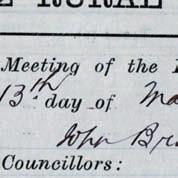 RURAL
Meeting of the
13th day of Ma
John Bre
Councillors: